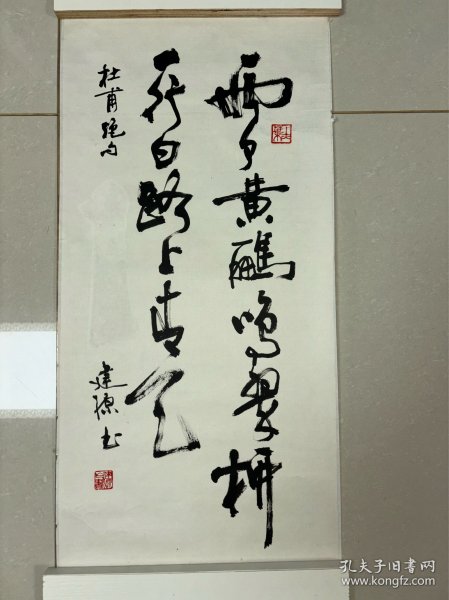 两个黄鹂鸣翠柳
一行白鹭上青天
杜甫绝句
建源书
孔夫子旧书网
www.kongfz.com